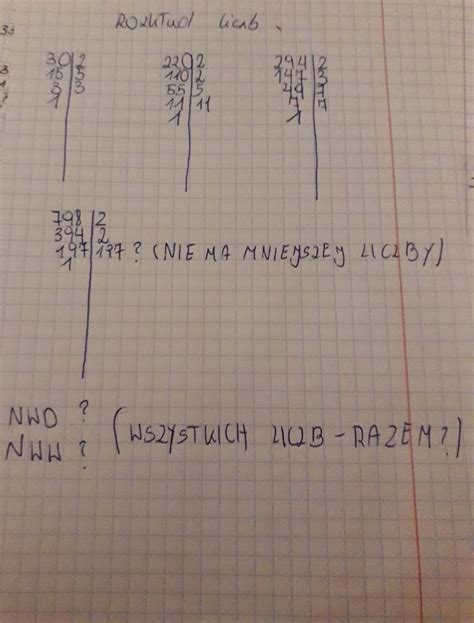 Rozkład liczb.
30|2 220|2 294|2
15|5 110|2 147|3
3|3 55|5 49|7
1 11|11 7|7
1 1
798|2
394|2
197|197 ? (NIE MA MNIEJSZEJ LICZBY)
1
NWD ?
NWW ? (WSZYSTKICH LICZB - RAZEM?)